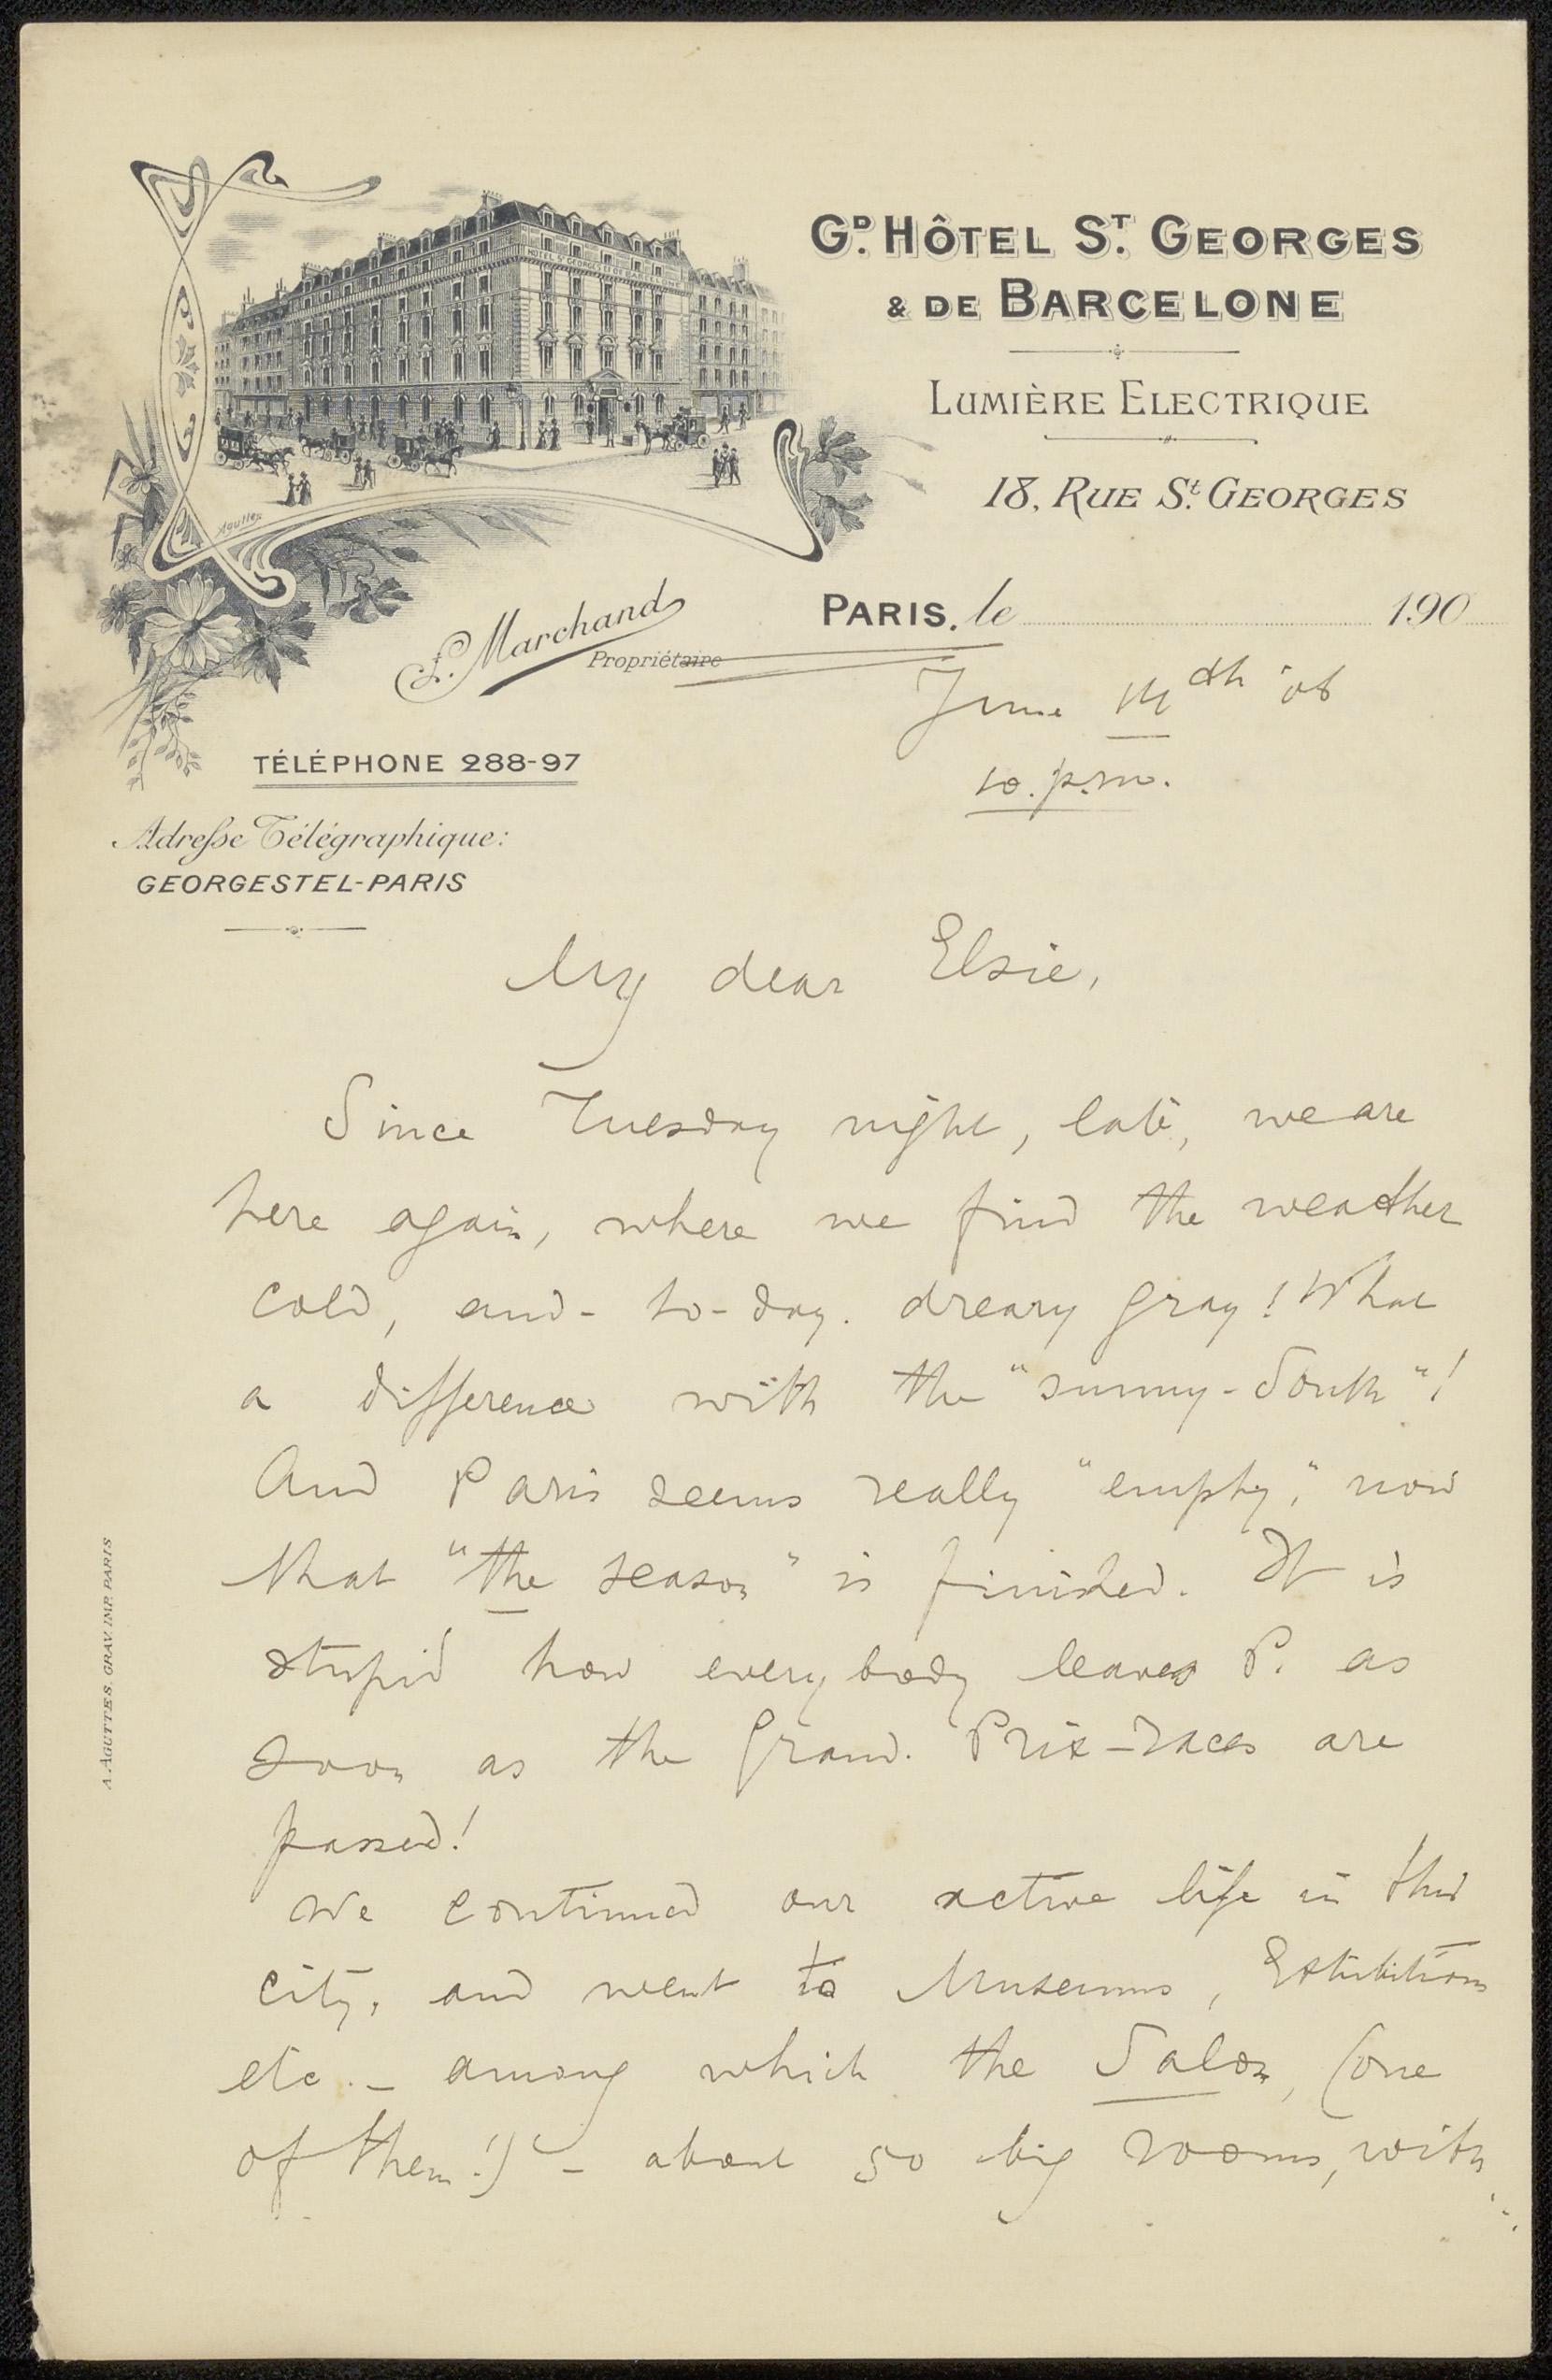 GD. HÔTEL ST. GEORGES
& DE BARCELONE
LUMIÈRE ELECTRIQUE
18, RUE St. GEORGES
PARIS, le 190
L. Marchand
Propriétaire
TÉLÉPHONE 288-97
Adresse Télégraphique:
GEORGESTEL-PARIS
June 14th '06
10. p.m.
My dear Elsie,
Since Tuesday night, late, we are
here again, where we find the weather
cold, and - to-day. dreary gray! What
a difference with the "sunny-South"!
And Paris seems really "empty", now
that "the season" is finished. It is
stupid how everybody leaves P. as
soon as the Grand. Prix-races are
passed!
We continued our active life in this
city, and went to Museums, Exhibitions
etc. - among which the Salon, (one
of them!) - about 50 big rooms, with
A. AGUTTES, GRAV. IMP. PARIS